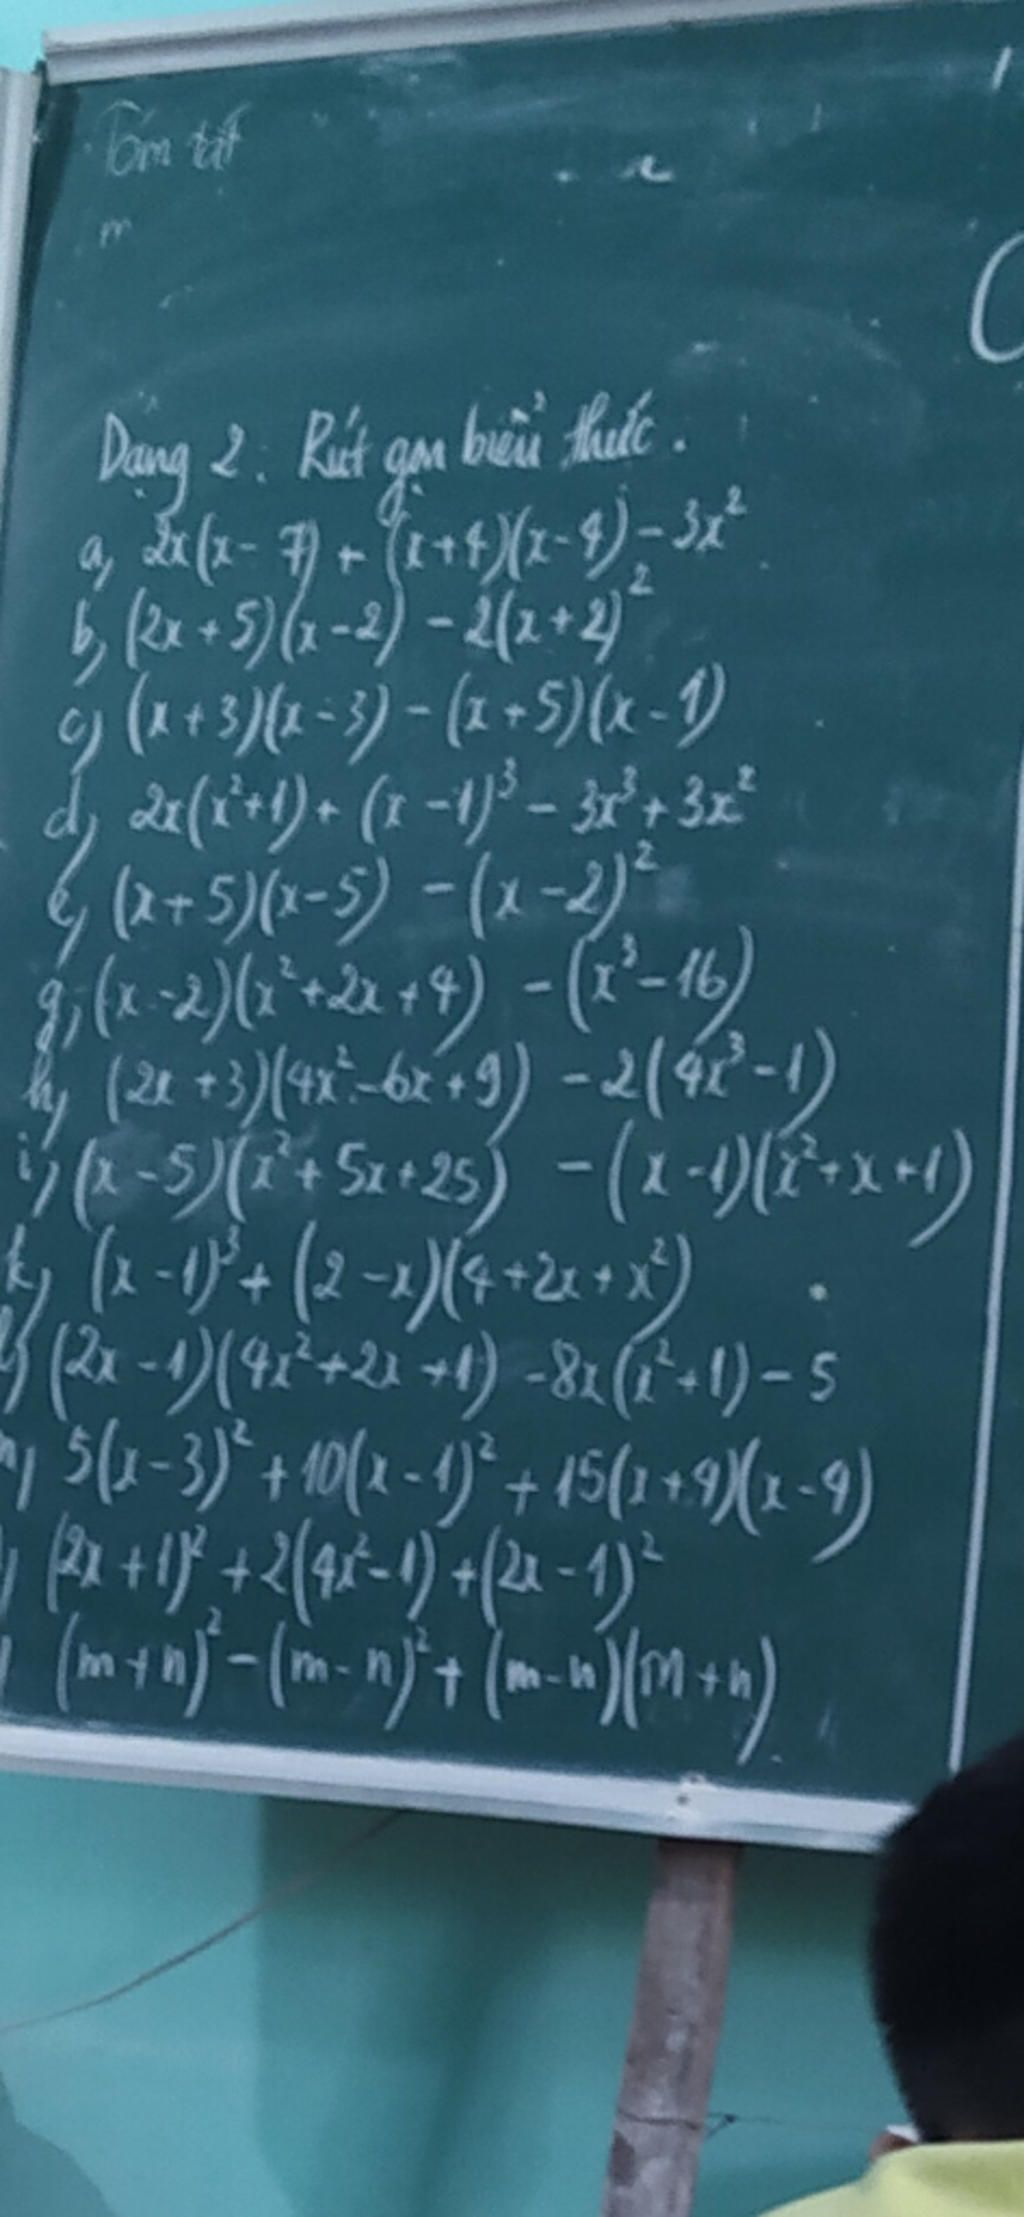 Tóm tắt
m
Dạng 2: Rút gọn biểu thức.
a, 2x(x-7) + (x+4)(x-4) - 3x²
b, (2x+5)(x-2) - 2(x+2)²
c, (x+3)(x-3) - (x+5)(x-1)
d, 2x(x²+1) + (x-1)³ - 3x³ + 3x²
e, (x+5)(x-5) - (x-2)²
g, (x-2)(x²+2x+4) - (x³-16)
h, (2x+3)(4x²-6x+9) - 2(4x³-1)
i, (x-5)(x²+5x+25) - (x-1)(x²+x+1)
k, (x-1)³ + (2-x)(4+2x+x²)
(2x-1)(4x²+2x+1) - 8x(x²+1) - 5
5(x-3)² + 10(x-1)² + 15(x+4)(x-4)
(2x+1)² + 2(4x²-1) + (2x-1)²
(m+n)² - (m-n)² + (m-n)(m+n)